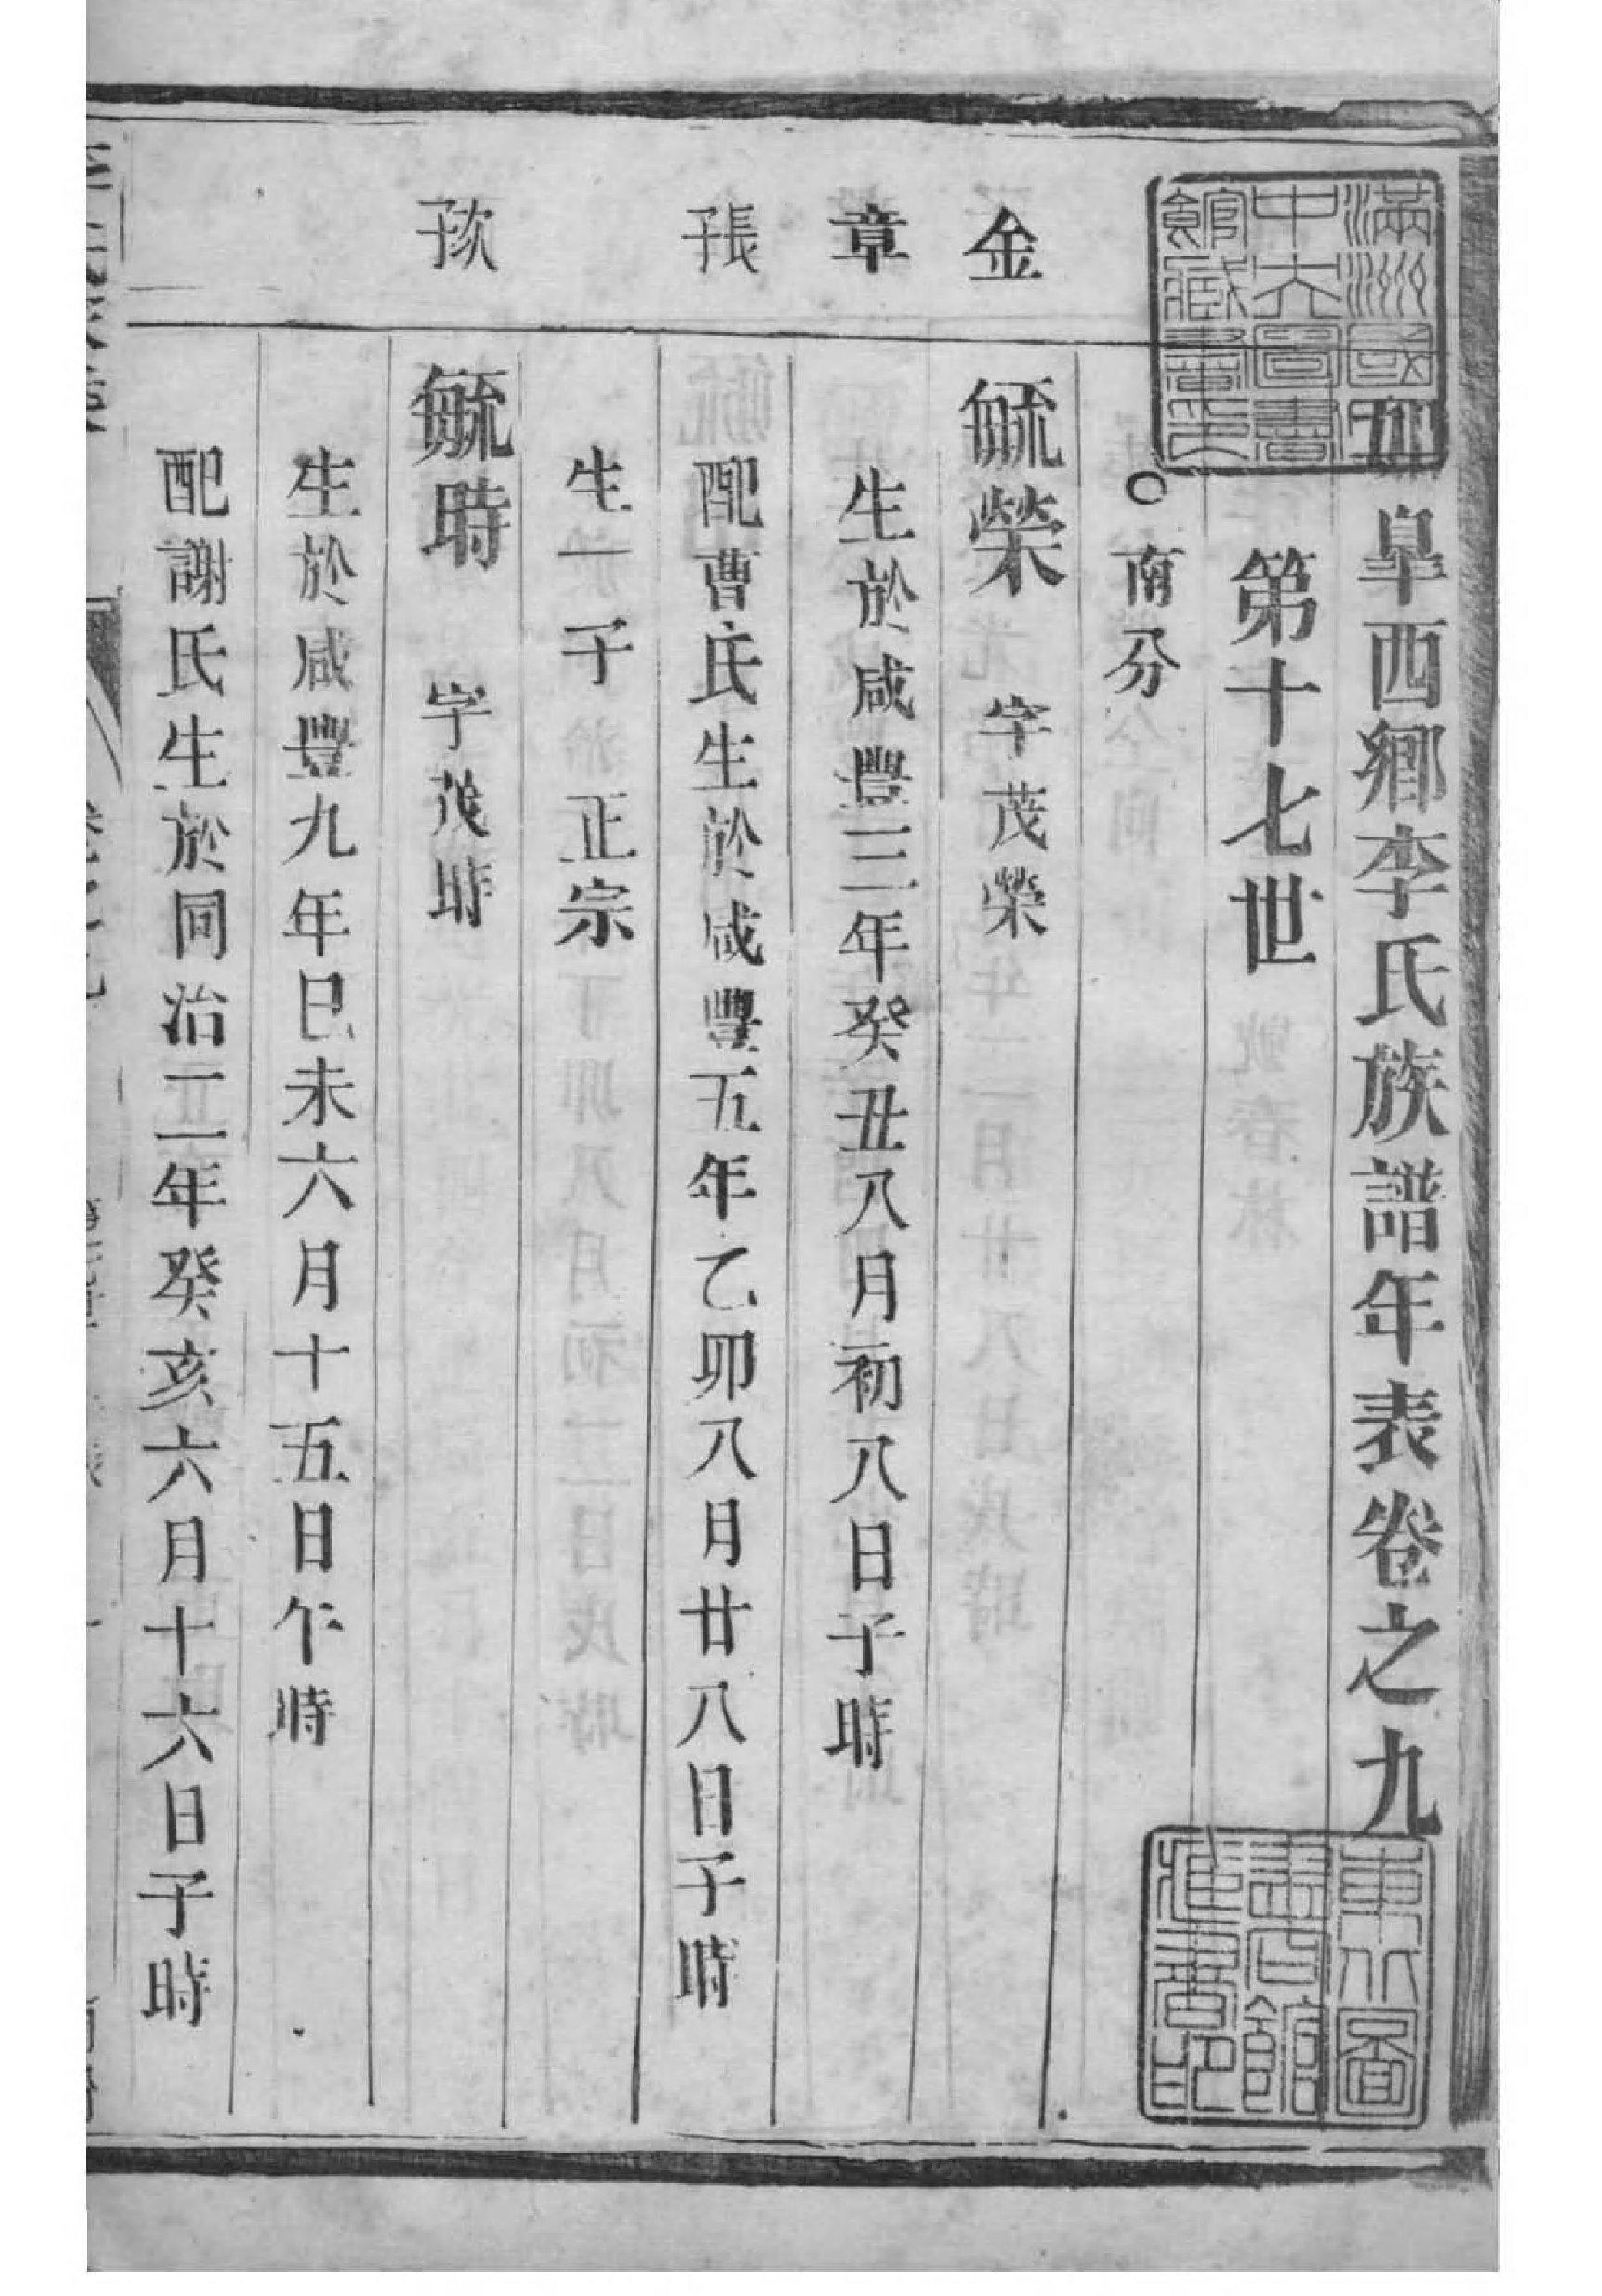 滿洲國立
中央圖書
館藏書印
如皐西鄉李氏族譜年表卷之九
東北圖
館
藏書印
第十七世
○南分
金
毓榮 字茂榮
章
生於咸豐三年癸丑八月初八日子時
長子
配曹氏生於咸豐五年乙卯八月廿八日子時
生一子 正宗
次子
毓時 字茂時
生於咸豐九年巳未六月十五日午時
配謝氏生於同治二年癸亥六月十六日子時